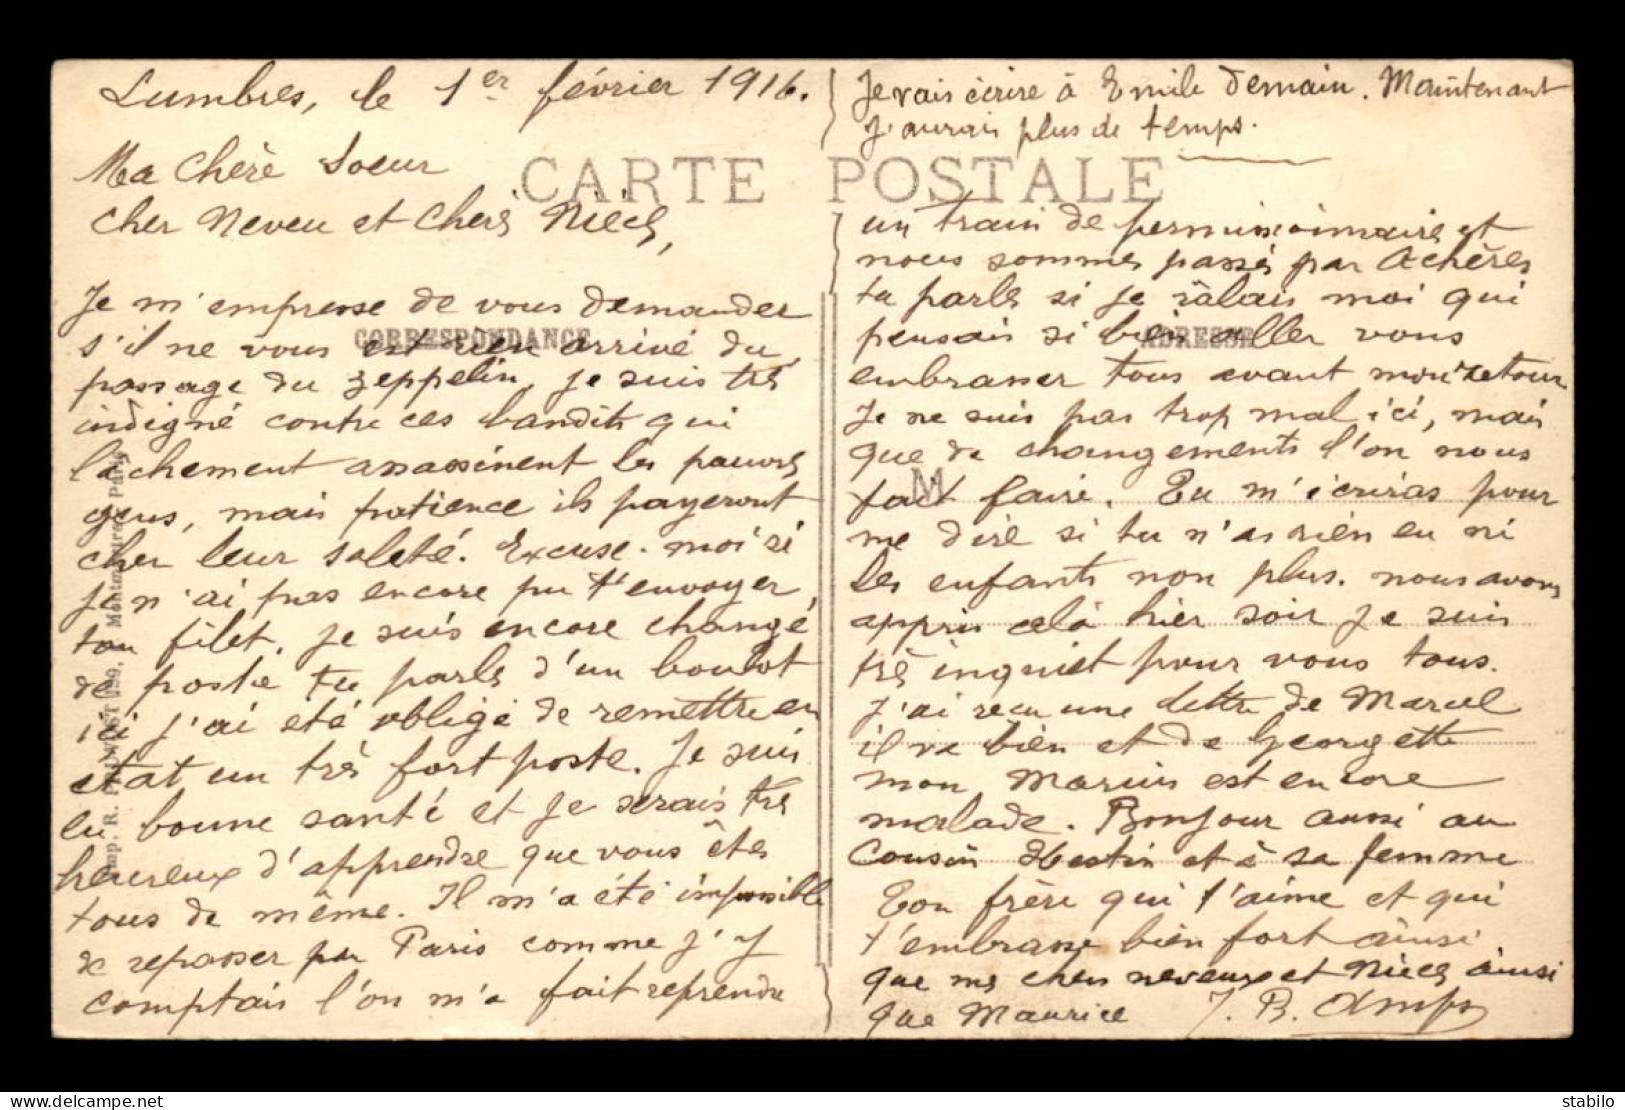 Lumbres, le 1er février 1916.
Ma Chère Soeur
Cher Neveu et Chers Nièces,
Je m'empresse de vous demander
s'il ne vous est rien arrivé du
passage du zeppelin, je suis très
indigné contre ces bandits qui
lâchement assassinent les pauvres
gens, mais patience ils payeront
cher leur saleté. Excuse-moi si
je n'ai pas encore pu t'envoyer
ton filet, je suis encore changé
de poste tu parles d'un boulot
ici j'ai été obligé de remettre en
état un très fort poste. Je suis
en bonne santé et je serais très
heureux d'apprendre que vous êtes
tous de même. Il m'a été impossible
de repasser par Paris comme j'y
comptais l'on m'a fait reprendre
Je vais écrire à Emile demain. Maintenant
j'aurais plus de temps.
CARTE POSTALE
un train de permissionnaires et
nous sommes passés par Achères
tu parles si je râlais moi qui
pensais si bien aller vous
embrasser tous avant mon retour
Je ne suis pas trop mal ici, mais
que de changements l'on nous
fait faire. Tu m'écriras pour
me dire si tu n'as rien eu ni
les enfants non plus. nous avons
appris celà hier soir je suis
très inquiet pour vous tous.
J'ai reçu une lettre de Marcel
il va bien et de Georgette
mon Marius est encore
malade. Bonjour aussi au
Cousin et à sa femme
Ton frère qui t'aime et qui
t'embrasse bien fort ainsi
que mes chers neveux et Nièces ainsi
que Maurice J. B.
CORRESPONDANCE
ADRESSE
M
Imp. R. PRUVOST 159, r. Montmartre, Paris
stabilo
delcampe.net